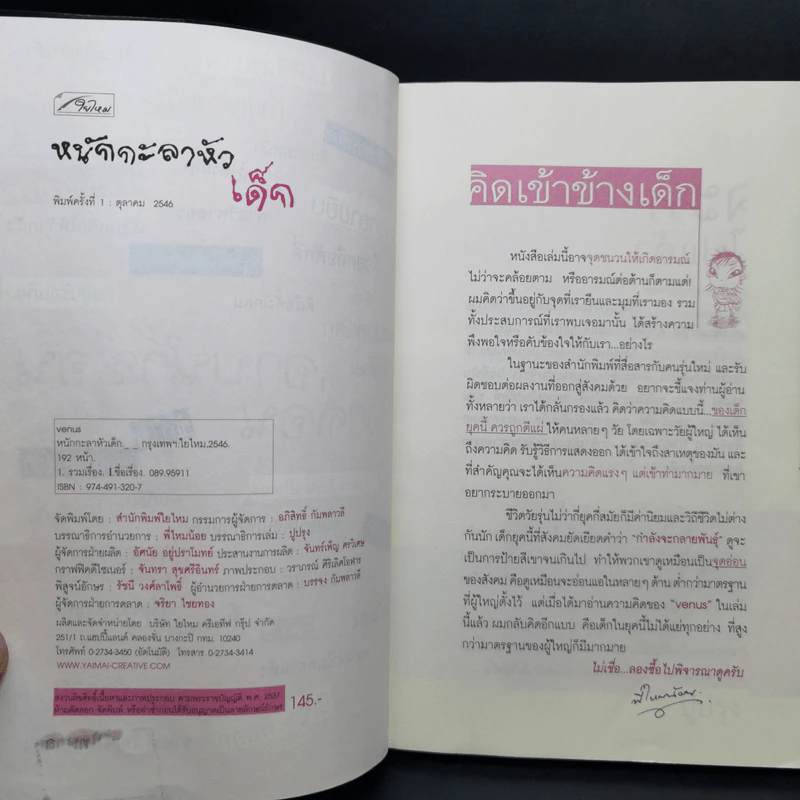 ใยไหม
หนักกะลาหัว
เด็ก
พิมพ์ครั้งที่ 1 : ตุลาคม 2546
venus
หนักกะลาหัวเด็ก._ _ กรุงเทพฯ:ใยไหม,2546.
192 หน้า.
1. รวมเรื่อง. I.ชื่อเรื่อง. 089.95911
ISBN : 974-491-320-7
จัดพิมพ์โดย : สำนักพิมพ์ใยไหม กรรมการผู้จัดการ : อภิสิทธิ์ กัมพลาวลี
บรรณาธิการอำนวยการ : พี่ไหมน้อย บรรณาธิการเล่ม : ปูปรุง
ผู้จัดการฝ่ายผลิต : อัศนัย อยู่ปราโมทย์ ประสานงานการผลิต : จันทร์เพ็ญ ศรวิเศษ
กราฟฟิคดีไซเนอร์ : จันทรา สุขศรีอินทร์ ภาพประกอบ : วราภรณ์ ศิริเลิศโอฬาร
พิสูจน์อักษร : รัชนี วงศ์ลาโพธิ์ ผู้อำนวยการฝ่ายการตลาด : บรรจง กัมพลาวลี
ผู้จัดการฝ่ายการตลาด : จริยา ไชยทอง
ผลิตและจัดจำหน่ายโดย บริษัท ใยไหม ครีเอทีฟ กรุ๊ป จำกัด
251/1 ถ.แฮปปี้แลนด์ คลองจั่น บางกะปิ กทม. 10240
โทรศัพท์ 0-2734-3450 (อัตโนมัติ) โทรสาร 0-2734-3414
WWW.YAIMAI-CREATIVE.COM
สงวนลิขสิทธิ์เนื้อหาและภาพประกอบ ตามพระราชบัญญัติ พ.ศ. 2537
ห้ามคัดลอก จัดพิมพ์ หรือทำซ้ำก่อนได้รับอนุญาตเป็นลายลักษณ์อักษร
145.-
คิดเข้าข้างเด็ก
หนังสือเล่มนี้อาจจุดชนวนให้เกิดอารมณ์
ไม่ว่าจะคล้อยตาม หรืออารมณ์ต่อต้านก็ตามแต่!
ผมคิดว่าขึ้นอยู่กับจุดที่เรายืนและมุมที่เรามอง รวม
ทั้งประสบการณ์ที่เราพบเจอมานั้น ได้สร้างความ
พึงพอใจหรือคับข้องใจให้กับเรา...อย่างไร
ในฐานะของสำนักพิมพ์ที่สื่อสารกับคนรุ่นใหม่ และรับ
ผิดชอบต่อผลงานที่ออกสู่สังคมด้วย อยากจะชี้แจงท่านผู้อ่าน
ทั้งหลายว่า เราได้กลั่นกรองแล้ว คิดว่าความคิดแบบนี้...ของเด็ก
ยุคนี้ ควรถูกตีแผ่ ให้คนหลายๆ วัย โดยเฉพาะวัยผู้ใหญ่ ได้เห็น
ถึงความคิด รับรู้วิธีการแสดงออก ได้เข้าใจถึงสาเหตุของมัน และ
ที่สำคัญคุณจะได้เห็นความคิดแรงๆ แต่เข้าท่ามากมาย ที่เขา
อยากระบายออกมา
ชีวิตวัยรุ่นไม่ว่ากี่ยุคกี่สมัยก็มีค่านิยมและวิถีชีวิตไม่ต่าง
กันนัก เด็กยุคนี้ที่สังคมยัดเยียดคำว่า "กำลังจะกลายพันธุ์" ดูจะ
เป็นการป้ายสีเขาจนเกินไป ทำให้พวกเขาดูเหมือนเป็นจุดอ่อน
ของสังคม คือดูเหมือนจะอ่อนแอในหลายๆ ด้าน ต่ำกว่ามาตรฐาน
ที่ผู้ใหญ่ตั้งไว้ แต่เมื่อได้มาอ่านความคิดของ "venus" ในเล่ม
นี้แล้ว ผมกลับคิดอีกแบบ คือเด็กในยุคนี้ไม่ได้แย่ทุกอย่าง ที่สูง
กว่ามาตรฐานของผู้ใหญ่ก็มีมากมาย
ไม่เชื่อ...ลองซื้อไปพิจารณาดูครับ
พี่ไหมน้อย